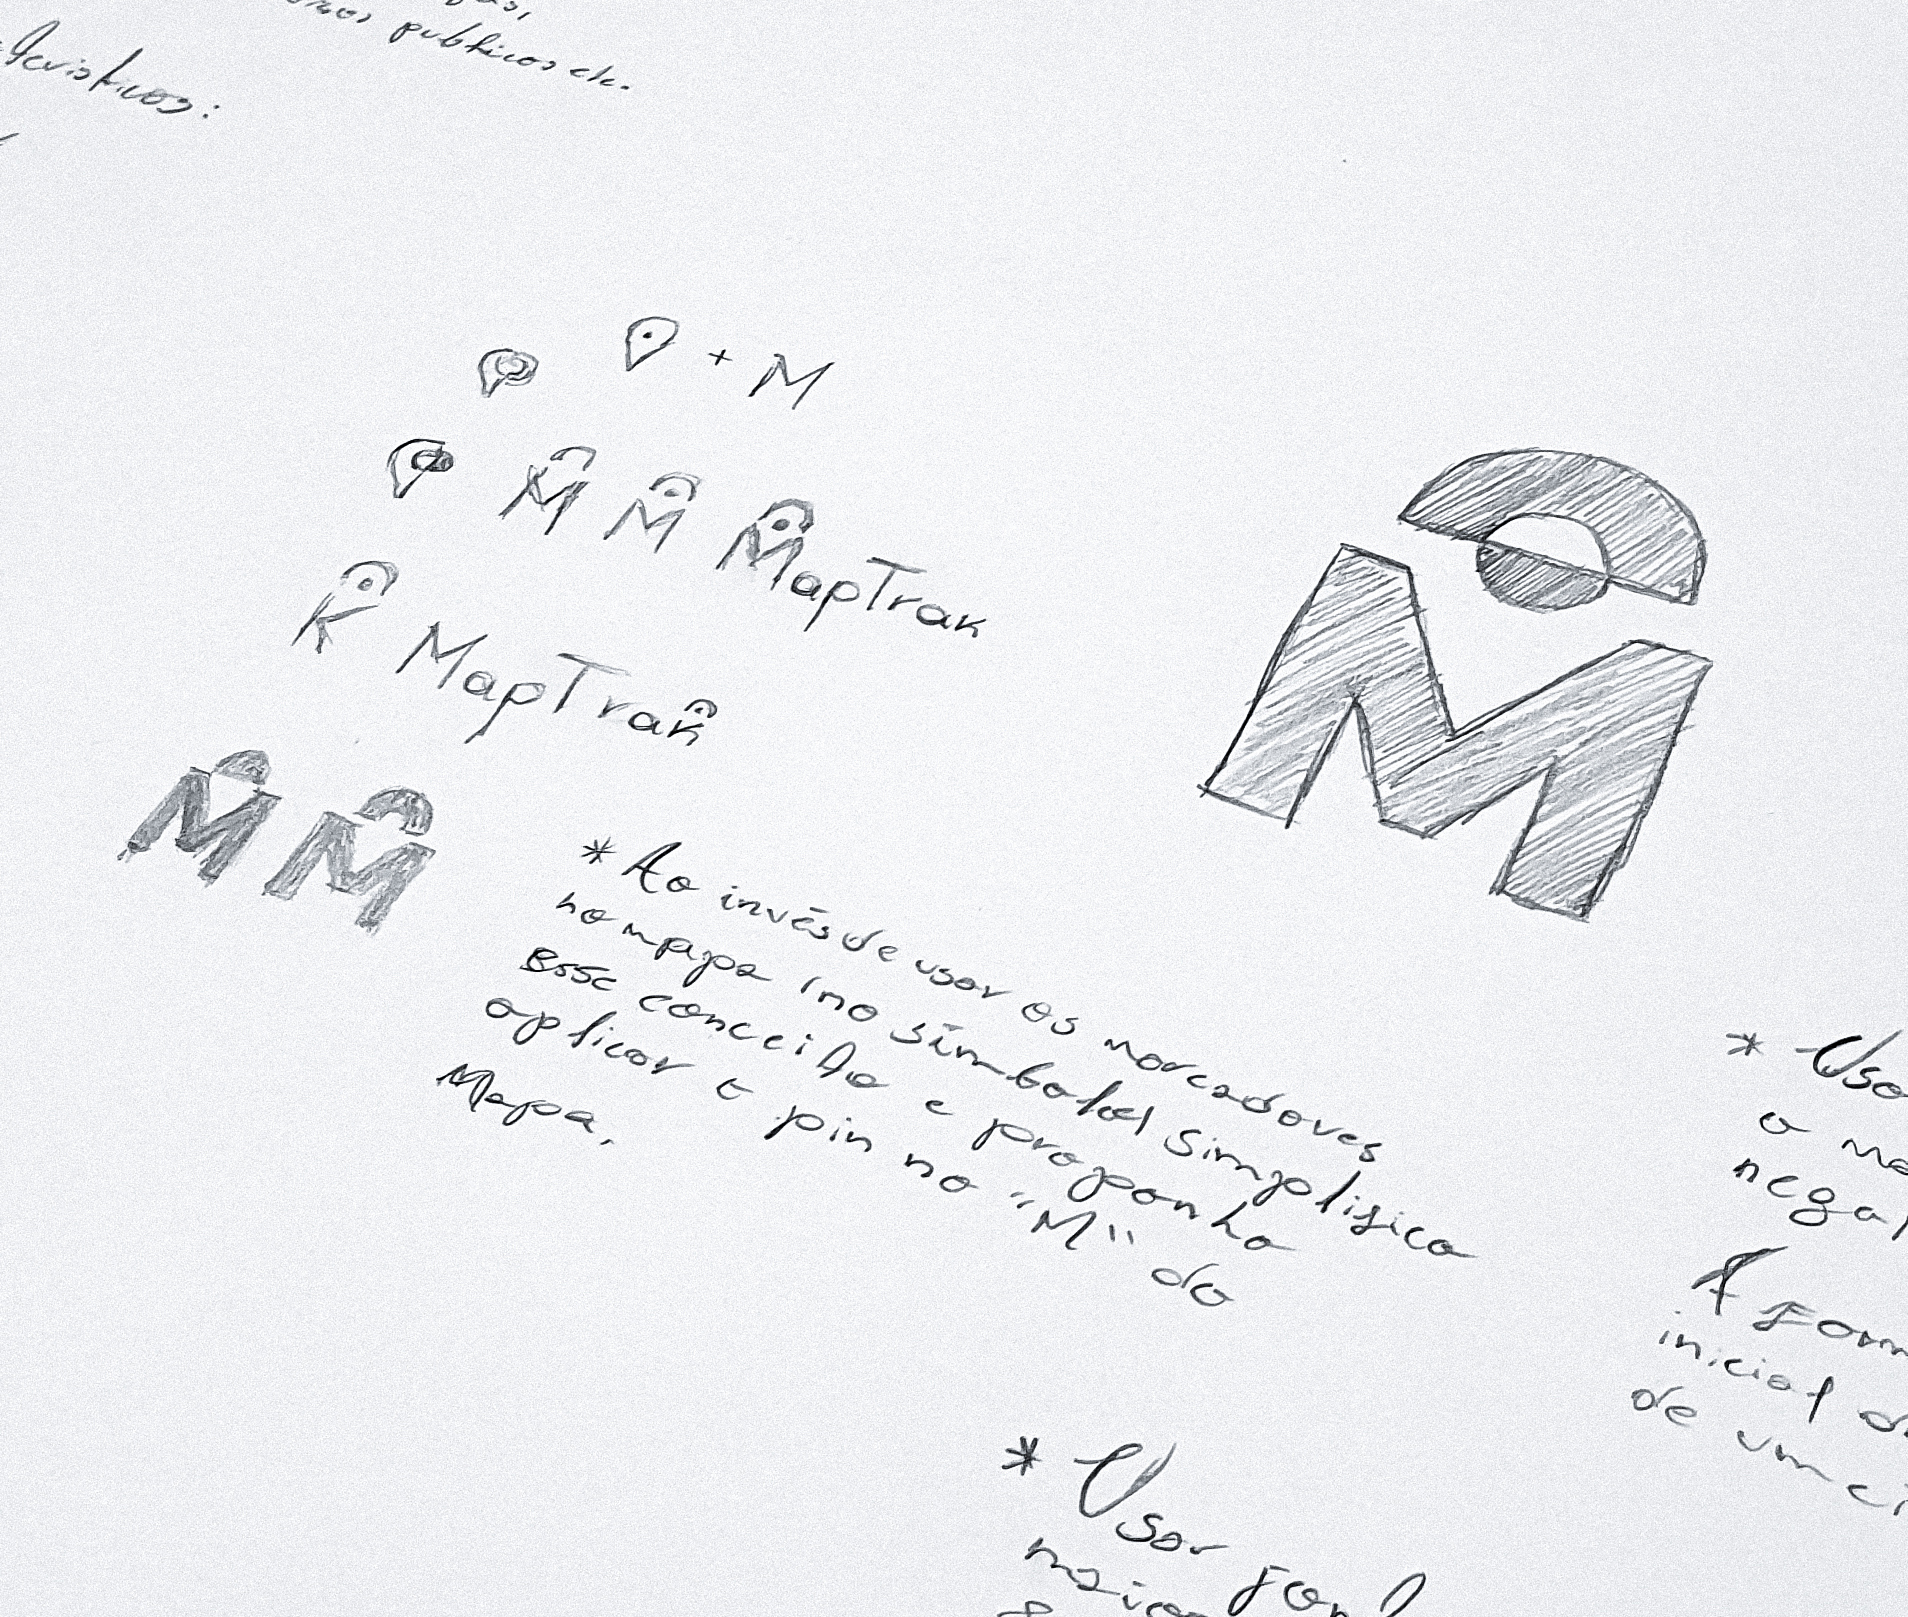 publicos etc.
+ M
M M MapTrak
K MapTrak
M M
M
* Ao invés de usar os marcadores
no mapa (no símbolo) simplifica
esse conceito e proponha
aplicar o pin no "M" do
Mapa.
* Uso
o
negat
A form
inicial d
de um ci
* Usar font